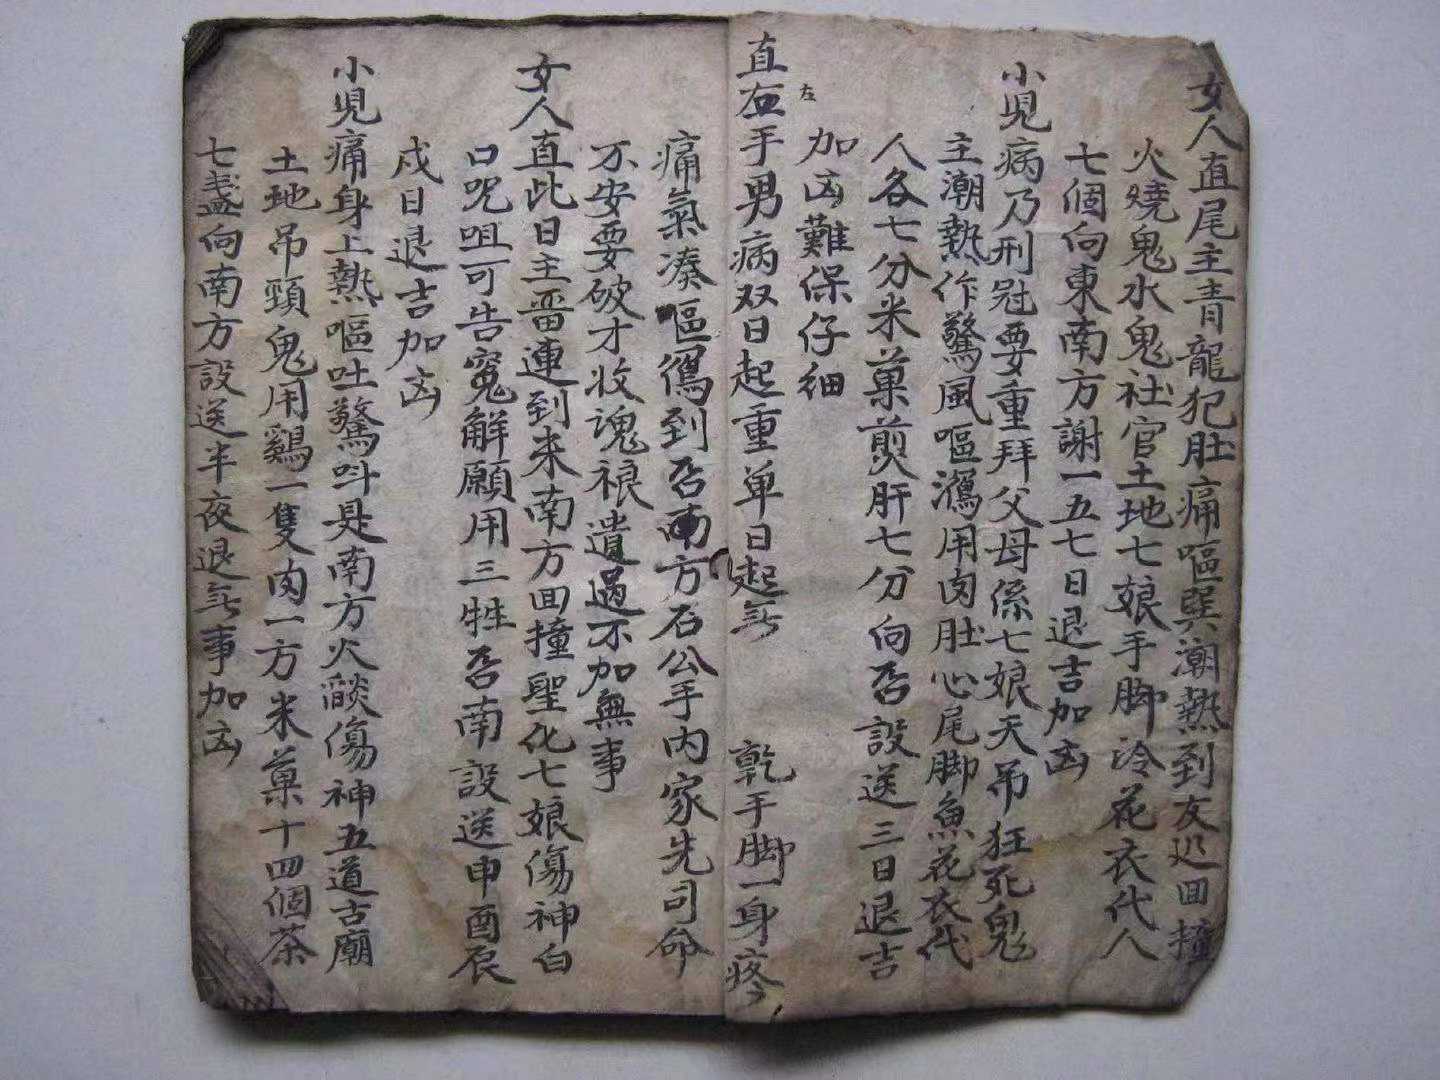 女人直尾主青龍犯肚痛嘔巽潮熱到友巡回撞
火燒鬼水鬼社官土地七娘手脚冷花衣代人
七個向東南方謝一五七日退吉加凶
小児病乃刑冠要重拜父母係七娘天吊狂死鬼
主潮熱作驚風嘔瀉用肉肚心尾脚魚花衣代
人各七分米菓煎肝七分向否設送三日退吉
加凶難保仔細
直右左手男病双日起重单日起 乾手脚一身疼
痛氣凑嘔到否南方石公手内家先司命
不安要破才收魂裉遺過不加無事
女人直此日主畨連到来南方回撞聖化七娘傷神白
口咒咀可告冤解願用三牲否南設送申酉辰
戌日退吉加凶
小児痛身上熱嘔吐驚呌是南方火傷神五道古廟
土地吊頸鬼用鷄一隻肉一方米菓十四個茶
七盞向南方設送半夜退事加凶